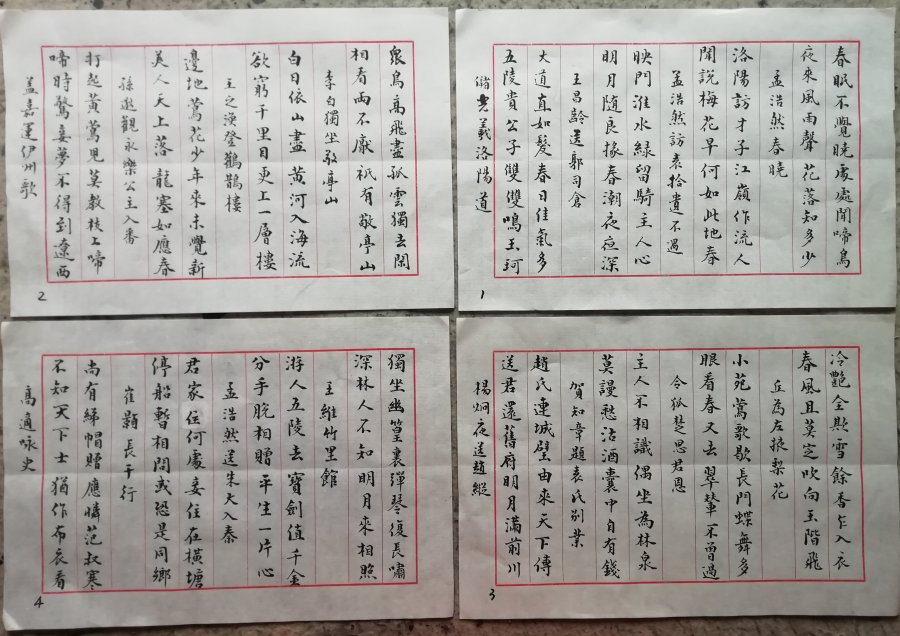 春眠不覺曉處處聞啼鳥
夜來風雨聲花落知多少
孟浩然春曉
洛陽訪才子江嶺作流人
聞說梅花早何如此地春
孟浩然訪袁拾遺不遇
映門淮水綠留騎主人心
明月隨良掾春潮夜夜深
王昌齡送郭司倉
大道直如髮春日佳氣多
五陵貴公子雙雙鳴玉珂
儲光義洛陽道
1
眾鳥高飛盡孤雲獨去閑
相看兩不厭祇有敬亭山
李白獨坐敬亭山
白日依山盡黃河入海流
欲窮千里目更上一層樓
王之渙登鸛鵲樓
邊地鶯花少年來未覺新
美人天上落龍塞如應春
孫逖觀永樂公主入番
打起黃鶯兒莫教枝上啼
啼時驚妾夢不得到遼西
蓋嘉運伊州歌
2
冷艷全欺雪餘香乍入衣
春風且莫定吹向玉階飛
丘為左掖梨花
小苑鶯歌歇長門蝶舞多
眼看春又去翠輦不曾過
令狐楚思君恩
主人不相識偶坐為林泉
莫謾愁沽酒囊中自有錢
賀知章題袁氏別業
趙氏連城璧由來天下傳
送君還舊府明月滿前川
楊炯夜送趙縱
3
獨坐幽篁裏彈琴復長嘯
深林人不知明月來相照
王維竹里館
游人五陵去寶劍值千金
分手脫相贈平生一片心
孟浩然送朱大入秦
君家住何處妾住在橫塘
停船暫相問或恐是同鄉
崔顥長干行
尚有綈帽贈應憐范叔寒
不知天下士猶作布衣看
高適咏史
4